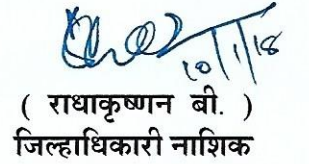 10/1/18
( राधाकृष्णन बी. )
जिल्हाधिकारी नाशिक